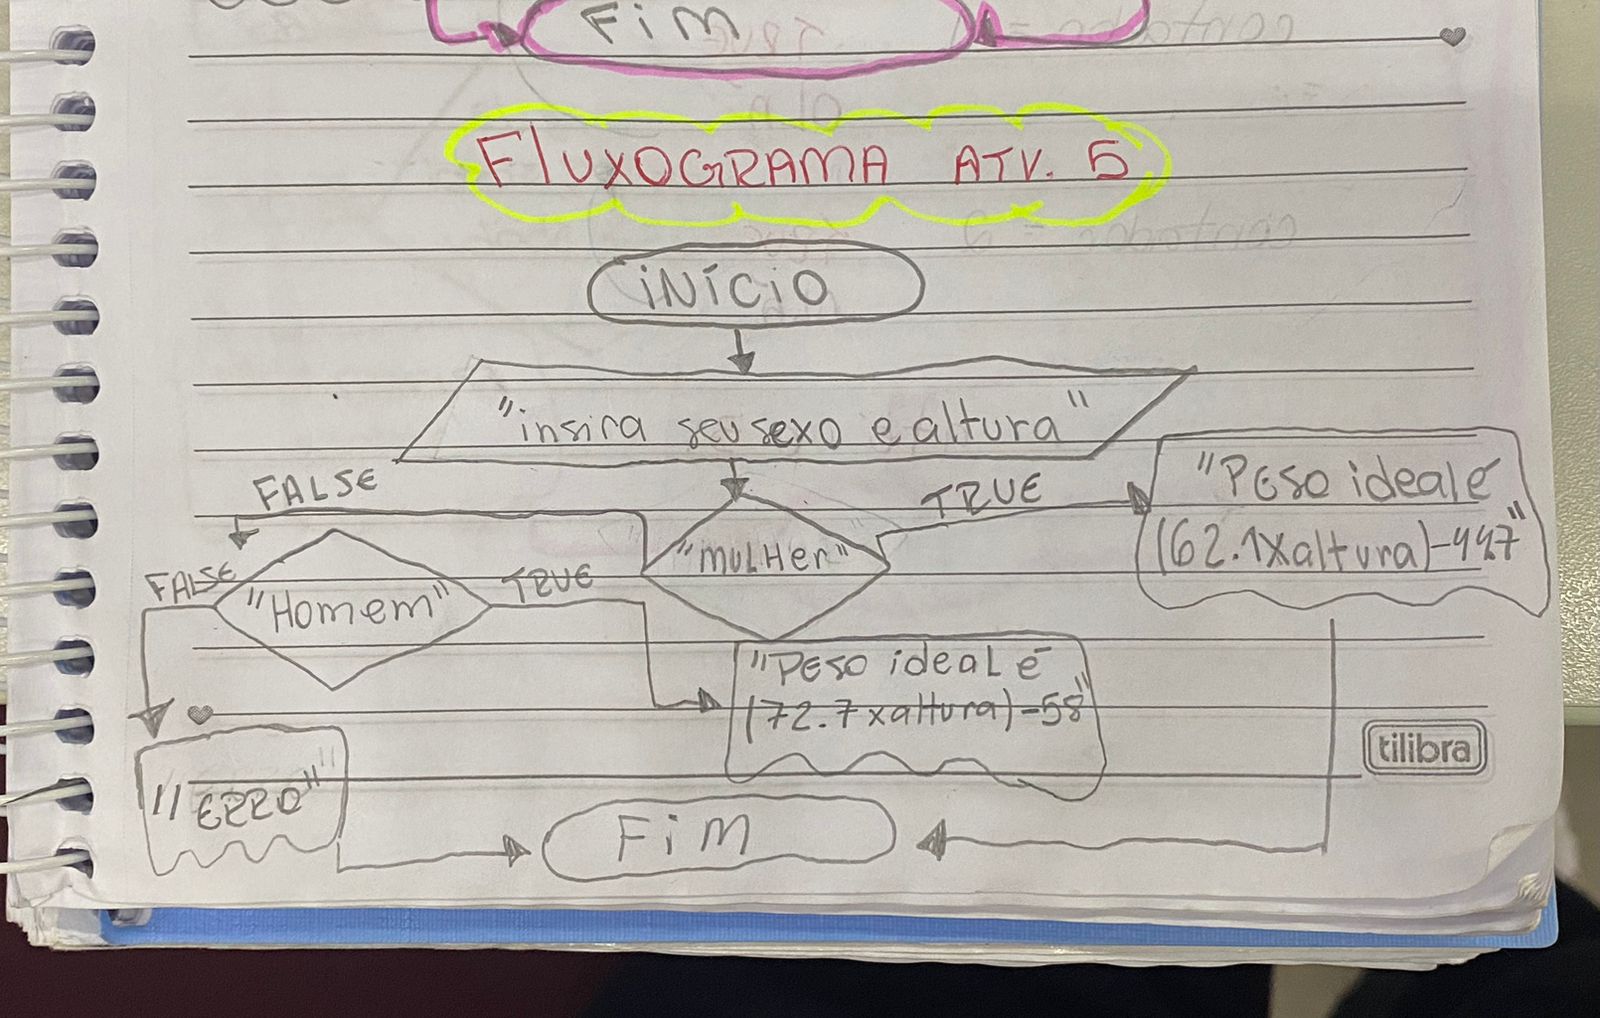 FiM
FluxOGRAMA ATV. 5
iNíCiO
"insira seu sexo e altura"
FALSE
TRUE
"Peso ideal é
(62.1xaltura)-447"
"MULHer"
FALSE
"Homem"
TRUE
"Peso ideal é
(72.7xaltura)-58"
"ERRO"
FiM
tilibra